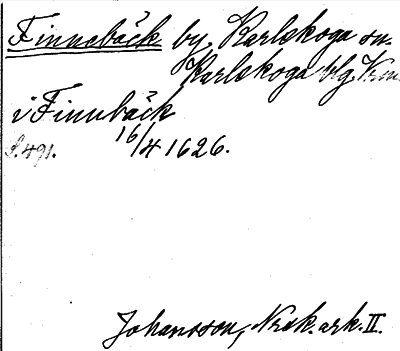 Finnebäck by, Karlskoga sn.
Karlskoga blg. Vrm.
i Finnbäck
S. 491. 16/4 1626.
Johansson, Nrk. ark. II.